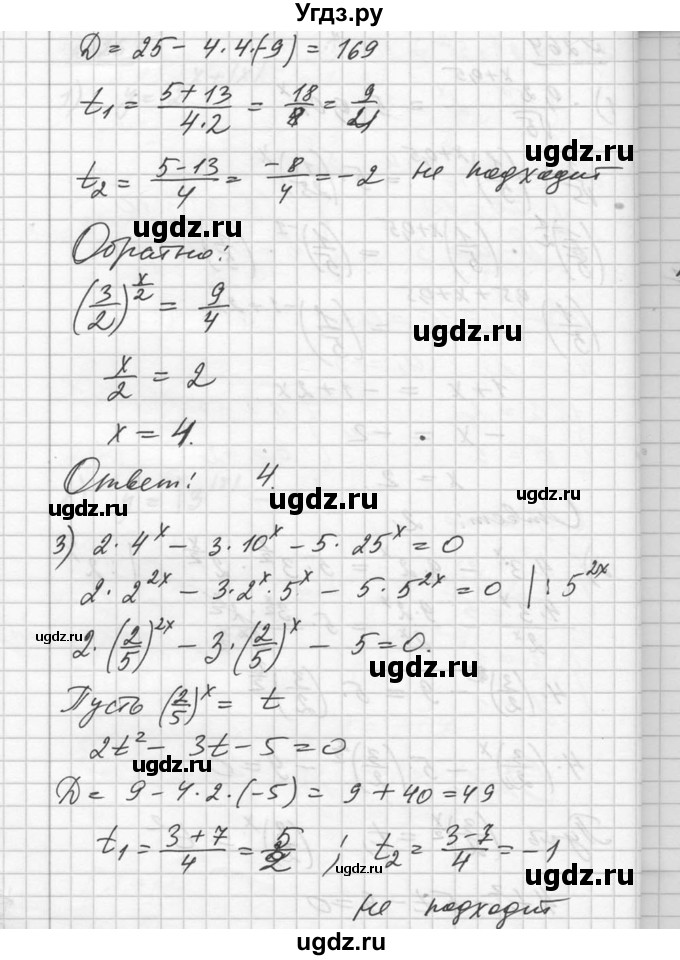 Угдз.ру
D = 25 - 4·4·(-9) = 169
t₁ = (5+13)/(4·2) = 18/8 = 9/4
t₂ = (5-13)/4 = -8/4 = -2 не подходит
ugdz.ru
ugdz.ru
Обратно:
(3/2)^(x/2) = 9/4
ugdz.ru
x/2 = 2
x = 4.
Ответ: 4.
ugdz.ru
ugdz.ru
3) 2·4^x - 3·10^x - 5·25^x = 0
2·2^(2x) - 3·2^x·5^x - 5·5^(2x) = 0 |: 5^(2x)
ugdz.ru
2·(2/5)^(2x) - 3·(2/5)^x - 5 = 0.
ugdz.ru
Пусть (2/5)^x = t
2t² - 3t - 5 = 0
ugdz.ru
D = 9 - 4·2·(-5) = 9 + 40 = 49
t₁ = (3+7)/4 = 5/2 ; t₂ = (3-7)/4 = -1
ugdz.ru
ugdz.ru
не подходит
ugdz.ru